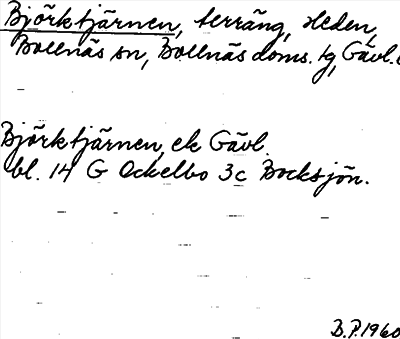 Björktjärnen, terräng, Heden,
Bollnäs sn, Bollnäs doms. tg, Gävl.
Björktjärnen, ek Gävl.
bl. 14 G Ockelbo 3c Bocksjön.
B.P. 1960